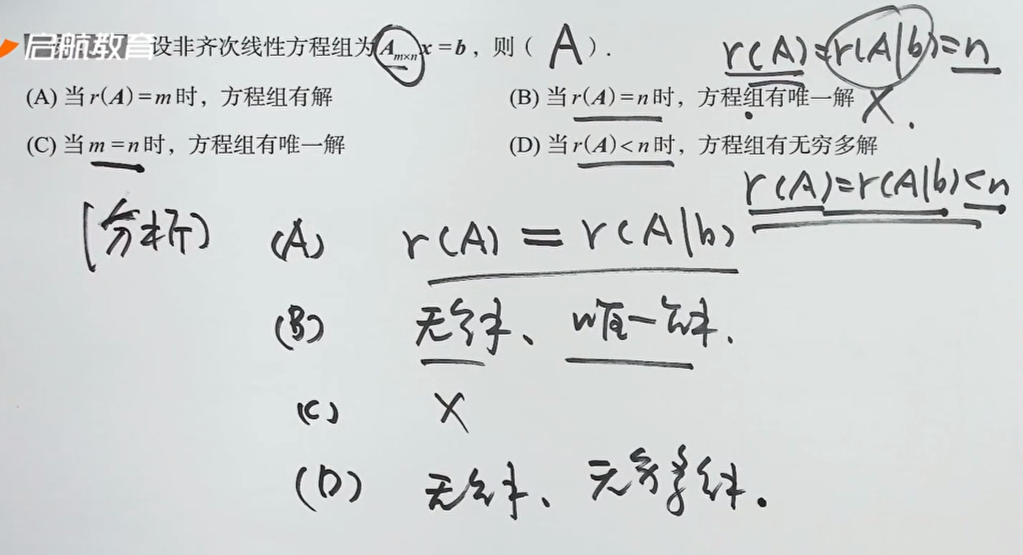 启航教育 设非齐次线性方程组为A_{m×n}x=b，则（ A ）. r(A)=r(A|b)=n
(A) 当 r(A)=m 时，方程组有解 (B) 当 r(A)=n 时，方程组有唯一解 ×.
(C) 当 m=n 时，方程组有唯一解 (D) 当 r(A)<n 时，方程组有无穷多解
r(A)=r(A|b)<n
[分析] (A) r(A)=r(A|b)
(B) 无解、唯一解.
(C) ×
(D) 无解、无穷多解.